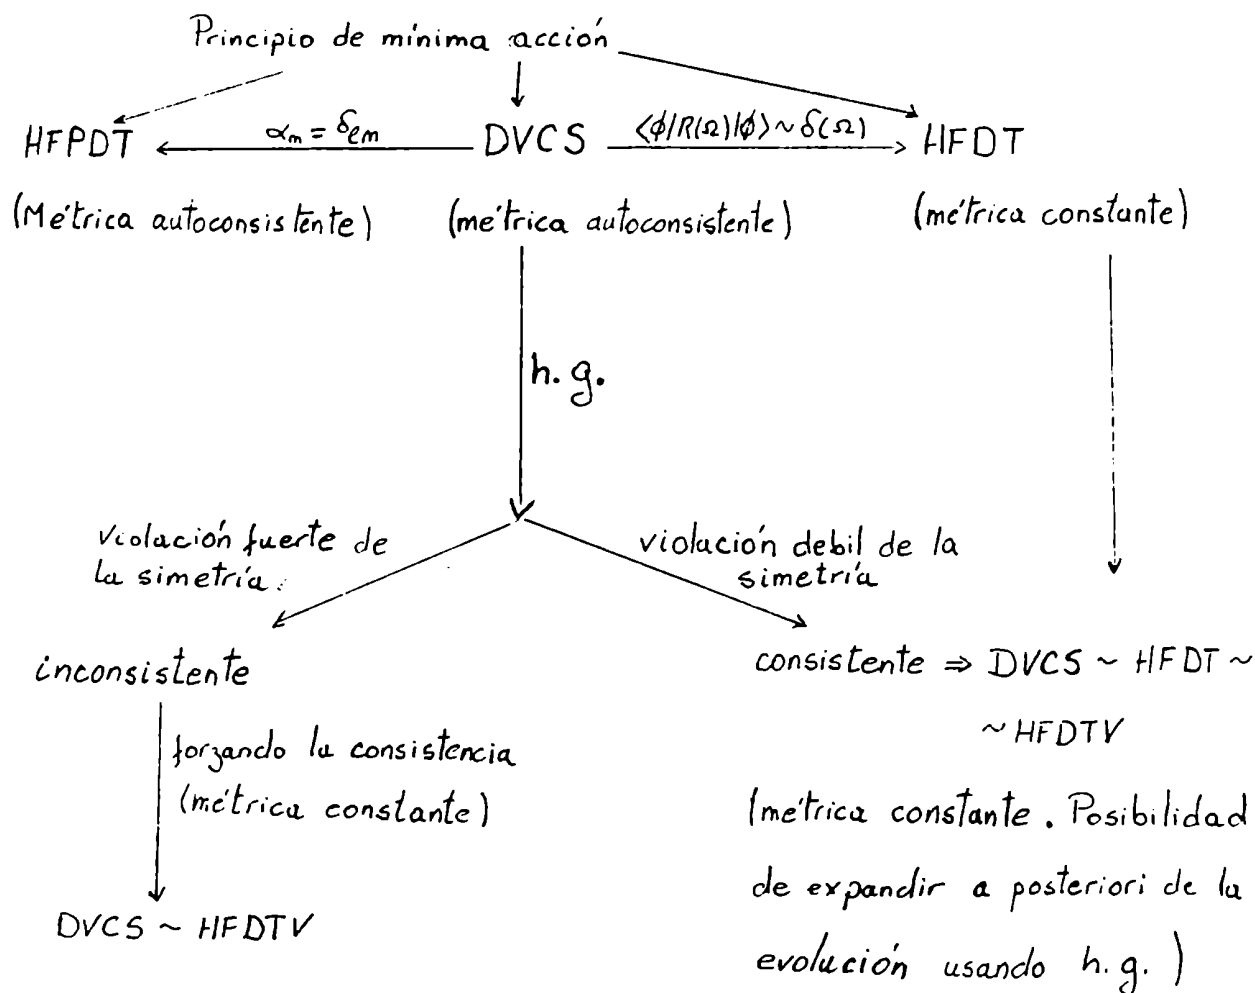 Principio de mínima acción
HFPDT αₘ = δₗₘ DVCS ⟨ϕ/R(Ω)/ϕ⟩ ~ δ(Ω) HFDT
(Métrica autoconsistente) (métrica autoconsistente) (métrica constante)
h. g.
violación fuerte de
la simetría.
violación debil de la
simetría
inconsistente
consistente ⇒ DVCS ~ HFDT ~
~ HFDTV
forzando la consistencia
(métrica constante)
(métrica constante. Posibilidad
de expandir a posteriori de la
evolución usando h. g.)
DVCS ~ HFDTV